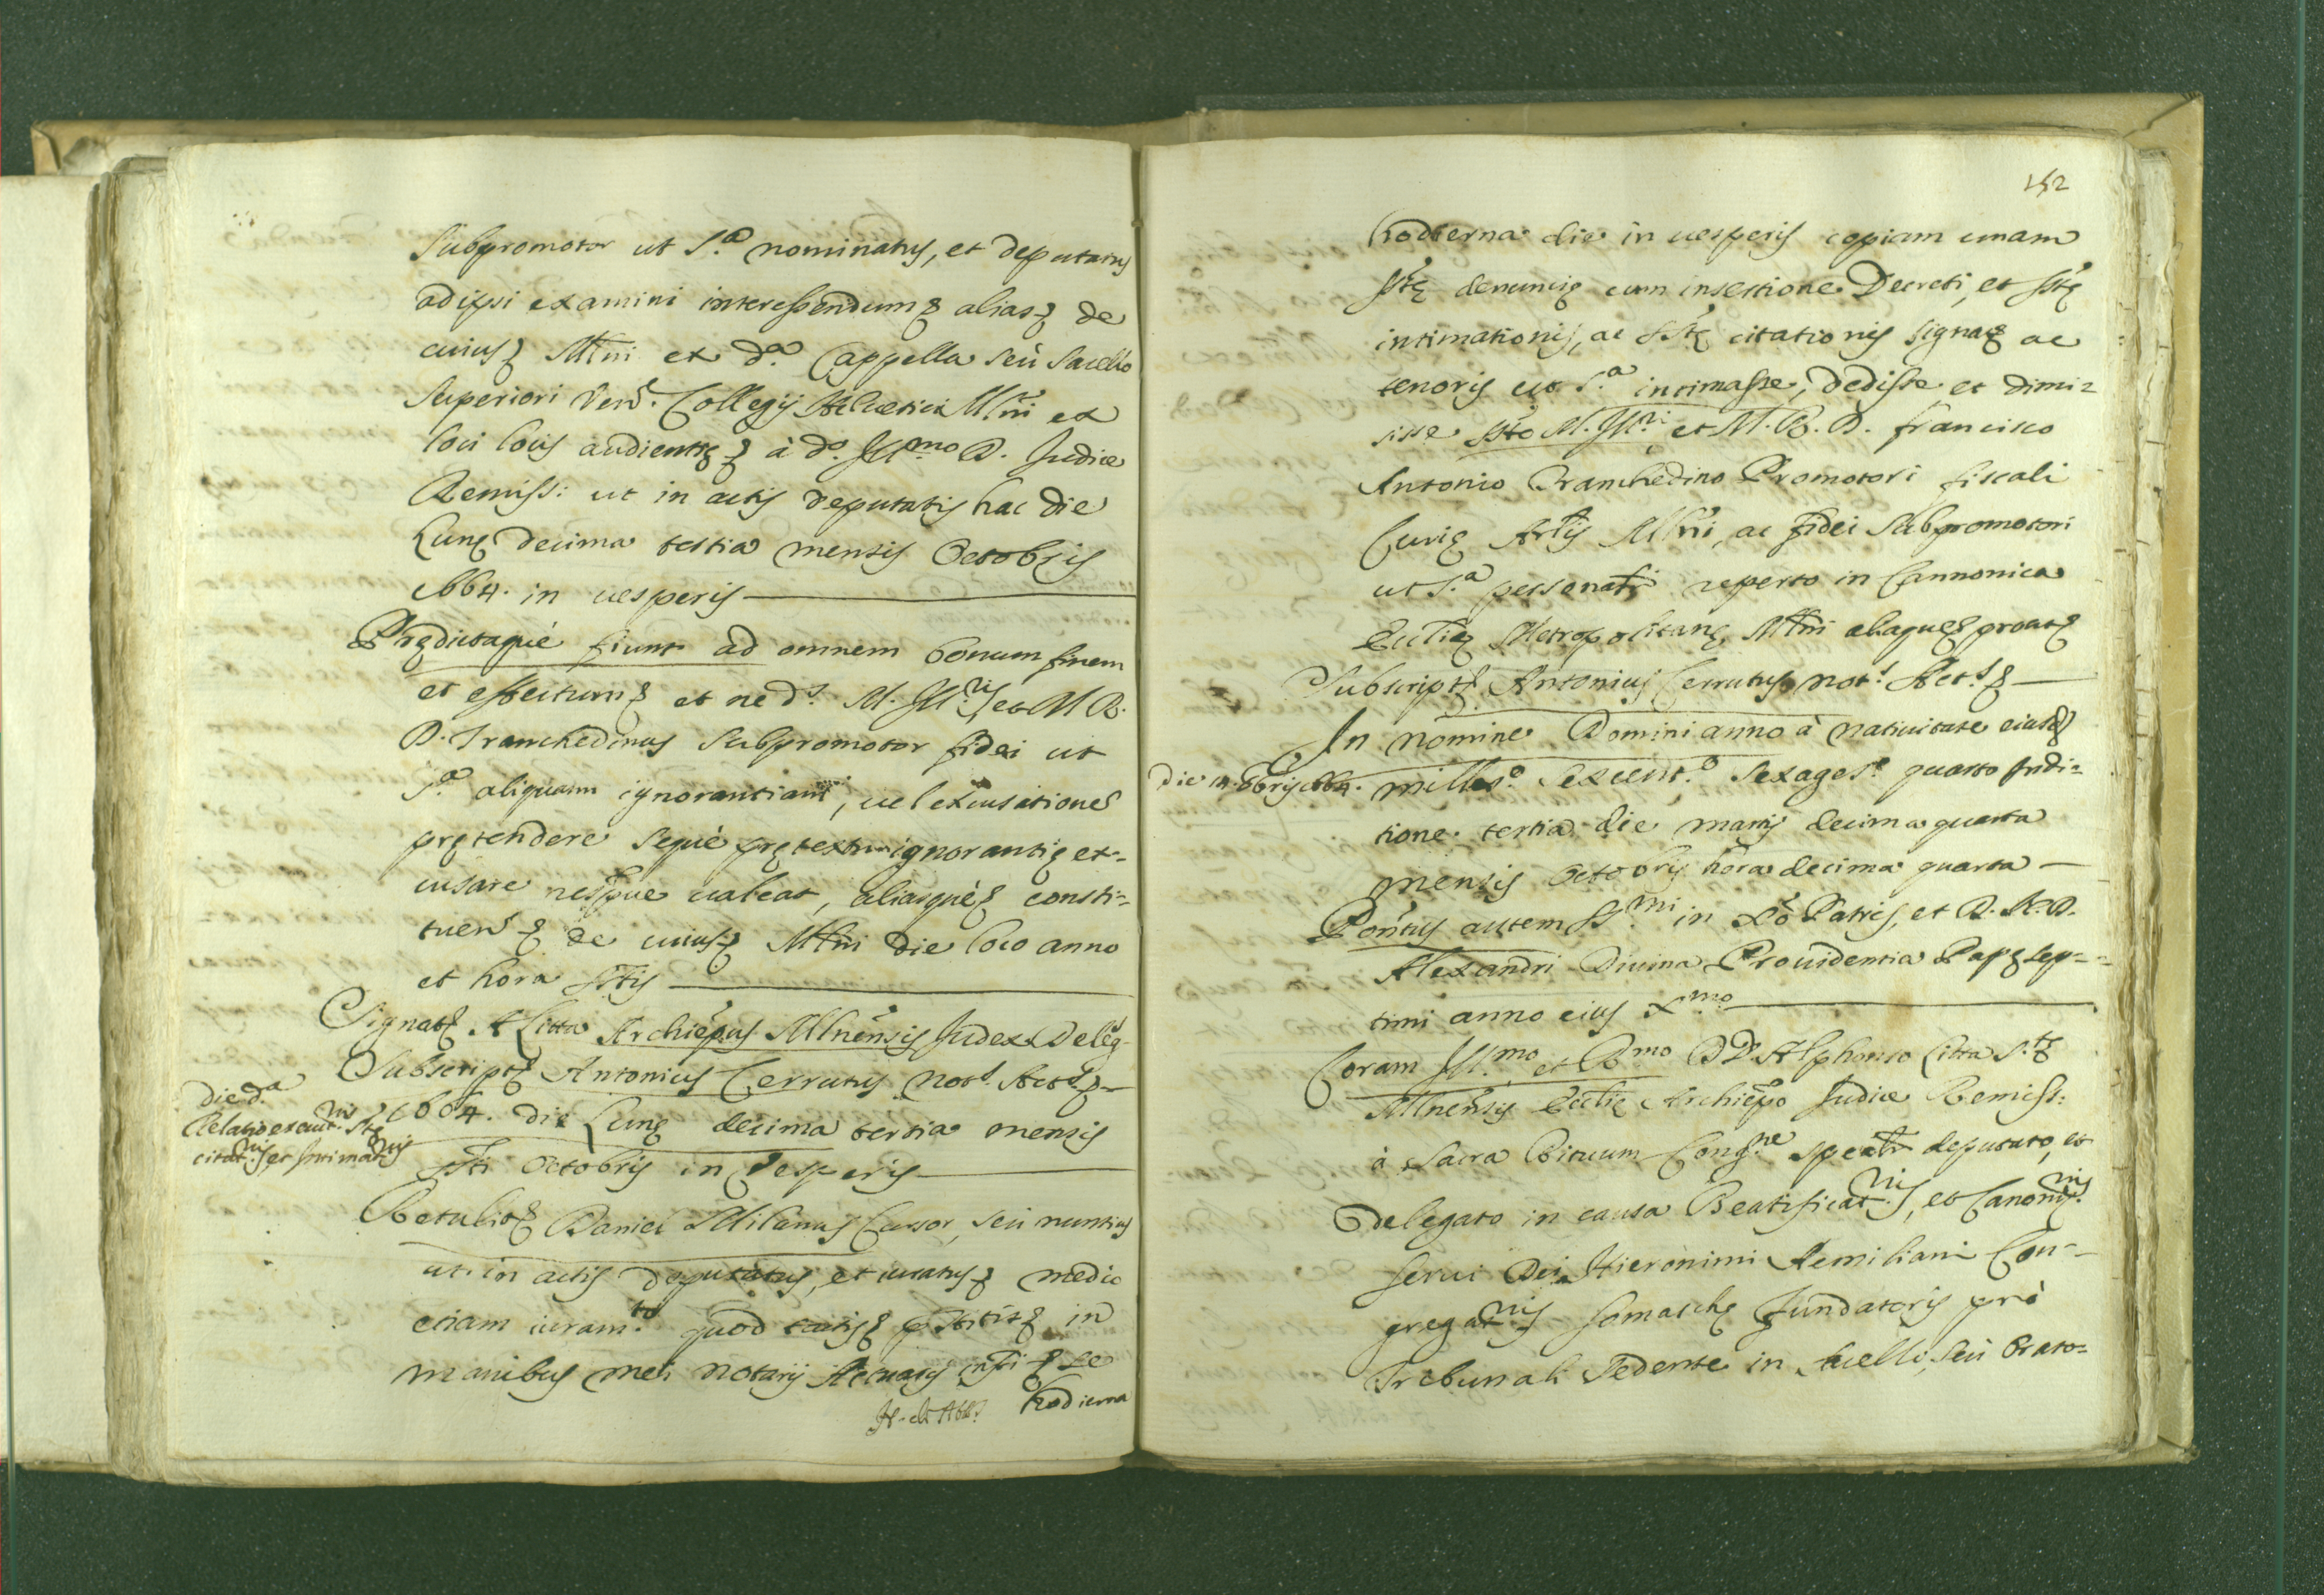 Subpromotor ut s.ª nominatus, et deputatus
ad ipsi examini interessendum &c alias &c de
cuius &c Mlni et d.ª Cappella seù sacello
superiori Ven. Collegij Helvetici Mlni ex
loci locis audientiæ &c à d.º Ill.mo D. Judice
Remiss: ut in actis deputatis hac die
Lunę decima tertia mensis Octobris
1664. in uesperis
Prędictaquè fiunt ad omnem bonum finem
et effectum &c et ne d.s M. Ill.ris et M. R.
D. Tranchedinus Subpromotor fidei ut
s.ª aliquam ignorantiam, uel excusationes
prętendere sequè prętextu ignorantię ex-
cusare nequè ualeat, aliasquè &c consti-
tuen &c de cuius &c Mlni die loco anno
et hora sstis
Signat &c A Litta Archiepus Mlnensis Judex Deleg.
Subscript &c Antonius Cerrutus Not.s Act.s &c
Die d.ª
Relatio execut.nis sstę
citat.nis et Intimat.nis
1664. die Lunę decima tertia mensis
ssti Octobris in Vesperis
Retulit &c Daniel Milanus Cursor, seù nuntius
ut in actis deputatus, et iuratus &c medio
etiam iuram.to quod tactis &c pstitit &c in
manibus mei notarij Actuarij infti &c se
Hodierna
152
hodierna die in uesperis copiam unam
sstę denuncię cum insertione Decreti, et sstę
intimationis, ac sstę citationis signat &c ac
tenoris ut s.ª intimasse, dedisse et dimi-
sisse ssto M. Ill.ri et M. R. D. Francisco
Antonio Tranchedino Promotori fiscali
Curię Arlis Mlni, ac fidei Subpromotori
ut s.ª personali reperto in Cannonica
Ecclię Metropolitanę Mlni aliaque &c prout &c
Subscript &c Antonius Cerrutus not.s Act.s &c
Die 14. 8bris 1664.
In nomine Domini anno à natiuitate eiusd
milles.º sexcent.º sexages.º quarto Indi-
tione tertia die martis decima quarta
mensis Octobris hora decima quarta
Pontus autem SS.mi in Xpo Patris, et D. N. D.
Alexandri Diuina Prouidentia Papę sep-
timi anno eius X.mo
Coram Ill.mo et R.mo DD. Alphonso Litta S.tę
Mlnensis Ecclię Archiepo Judice Remiss:
à Sacra Rituum Cong.ne spealr deputato, et
delegato in causa Beatificat.nis, et Canoniz.nis
serui Dei Hieronimi Aemiliani Con-
gregat.nis somaschę fundatoris prò
Tribunali sedente in Sacello, seù Orato-